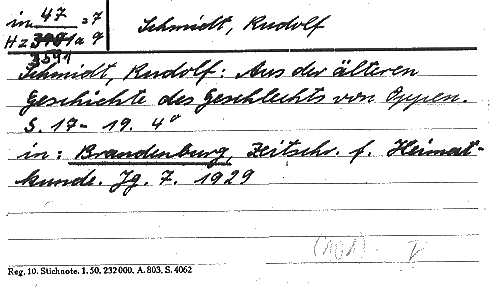 in 47 = 7 Schmidt, Rudolf
Hz 3591 a 9
Schmidt, Rudolf: Aus der älteren
Geschichte des Geschlechts von Oppen.
S. 17 - 19. 4°
in: Brandenburg, Zeitschr. f. Heimat-
kunde. Jg. 7. 1929
Reg. 10. Stichnote. 1. 50. 232000. A. 803. S. 4062